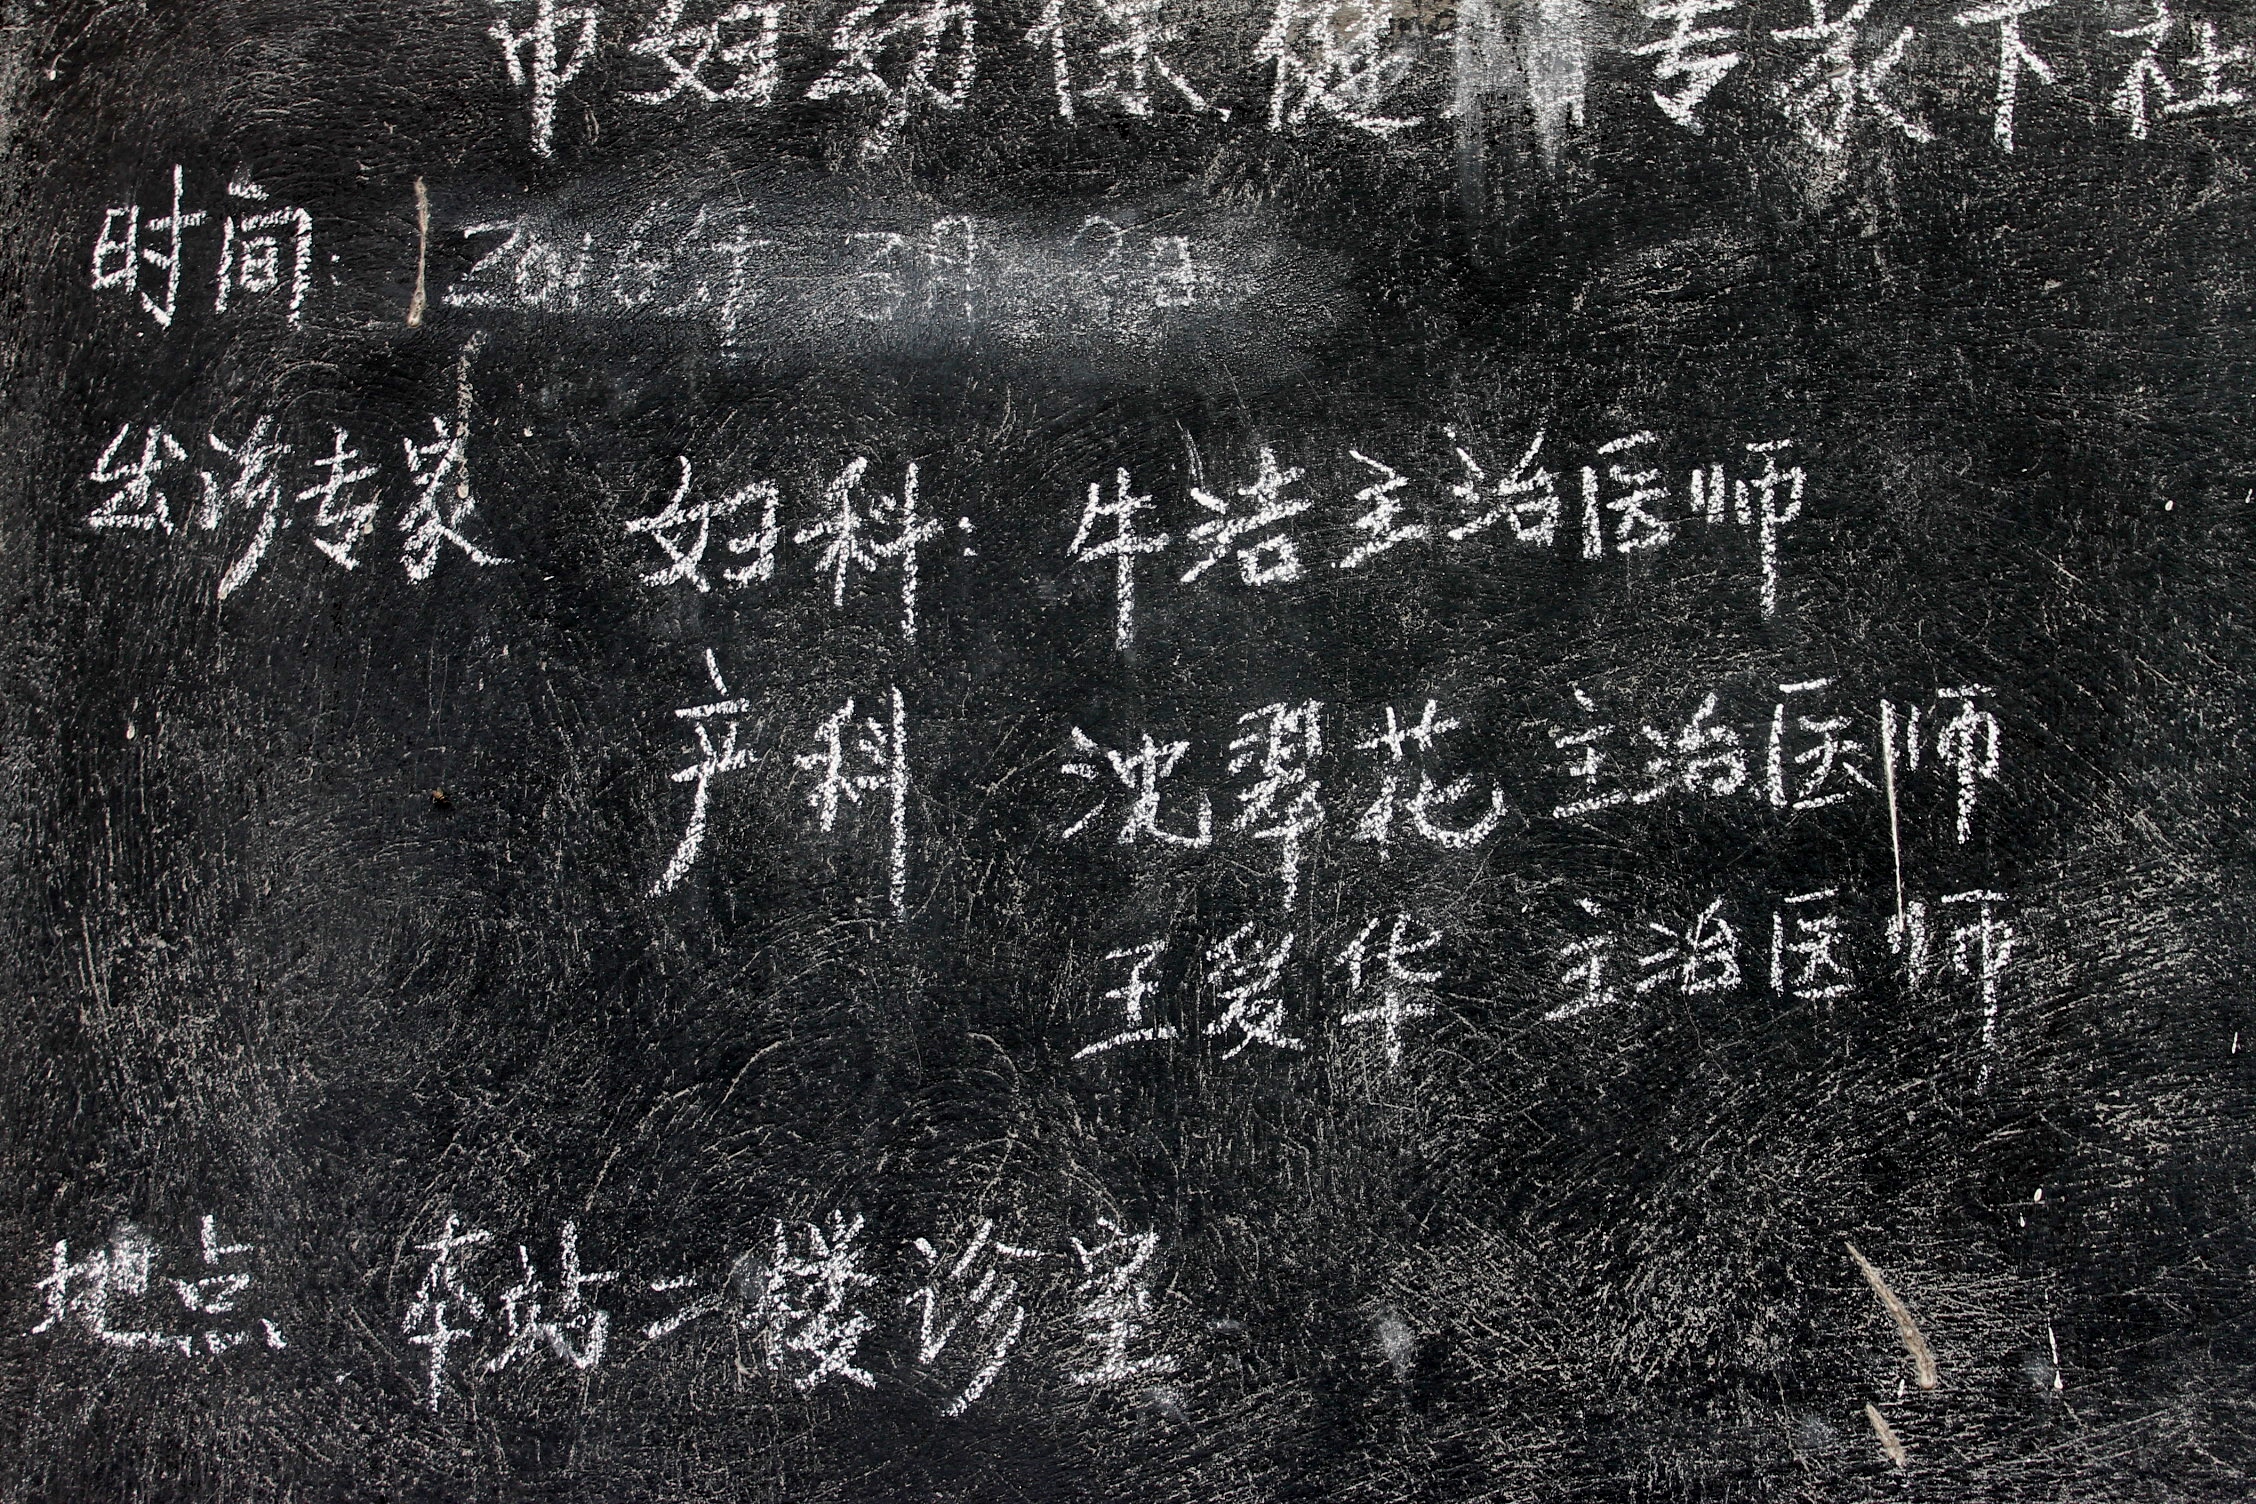 市妇幼保健 专家下社
时间: 2016年3月 日
出诊专家 妇科: 牛洁主治医师
产科 沈翠花 主治医师
王爱华 主治医师
地点 本站一楼诊室